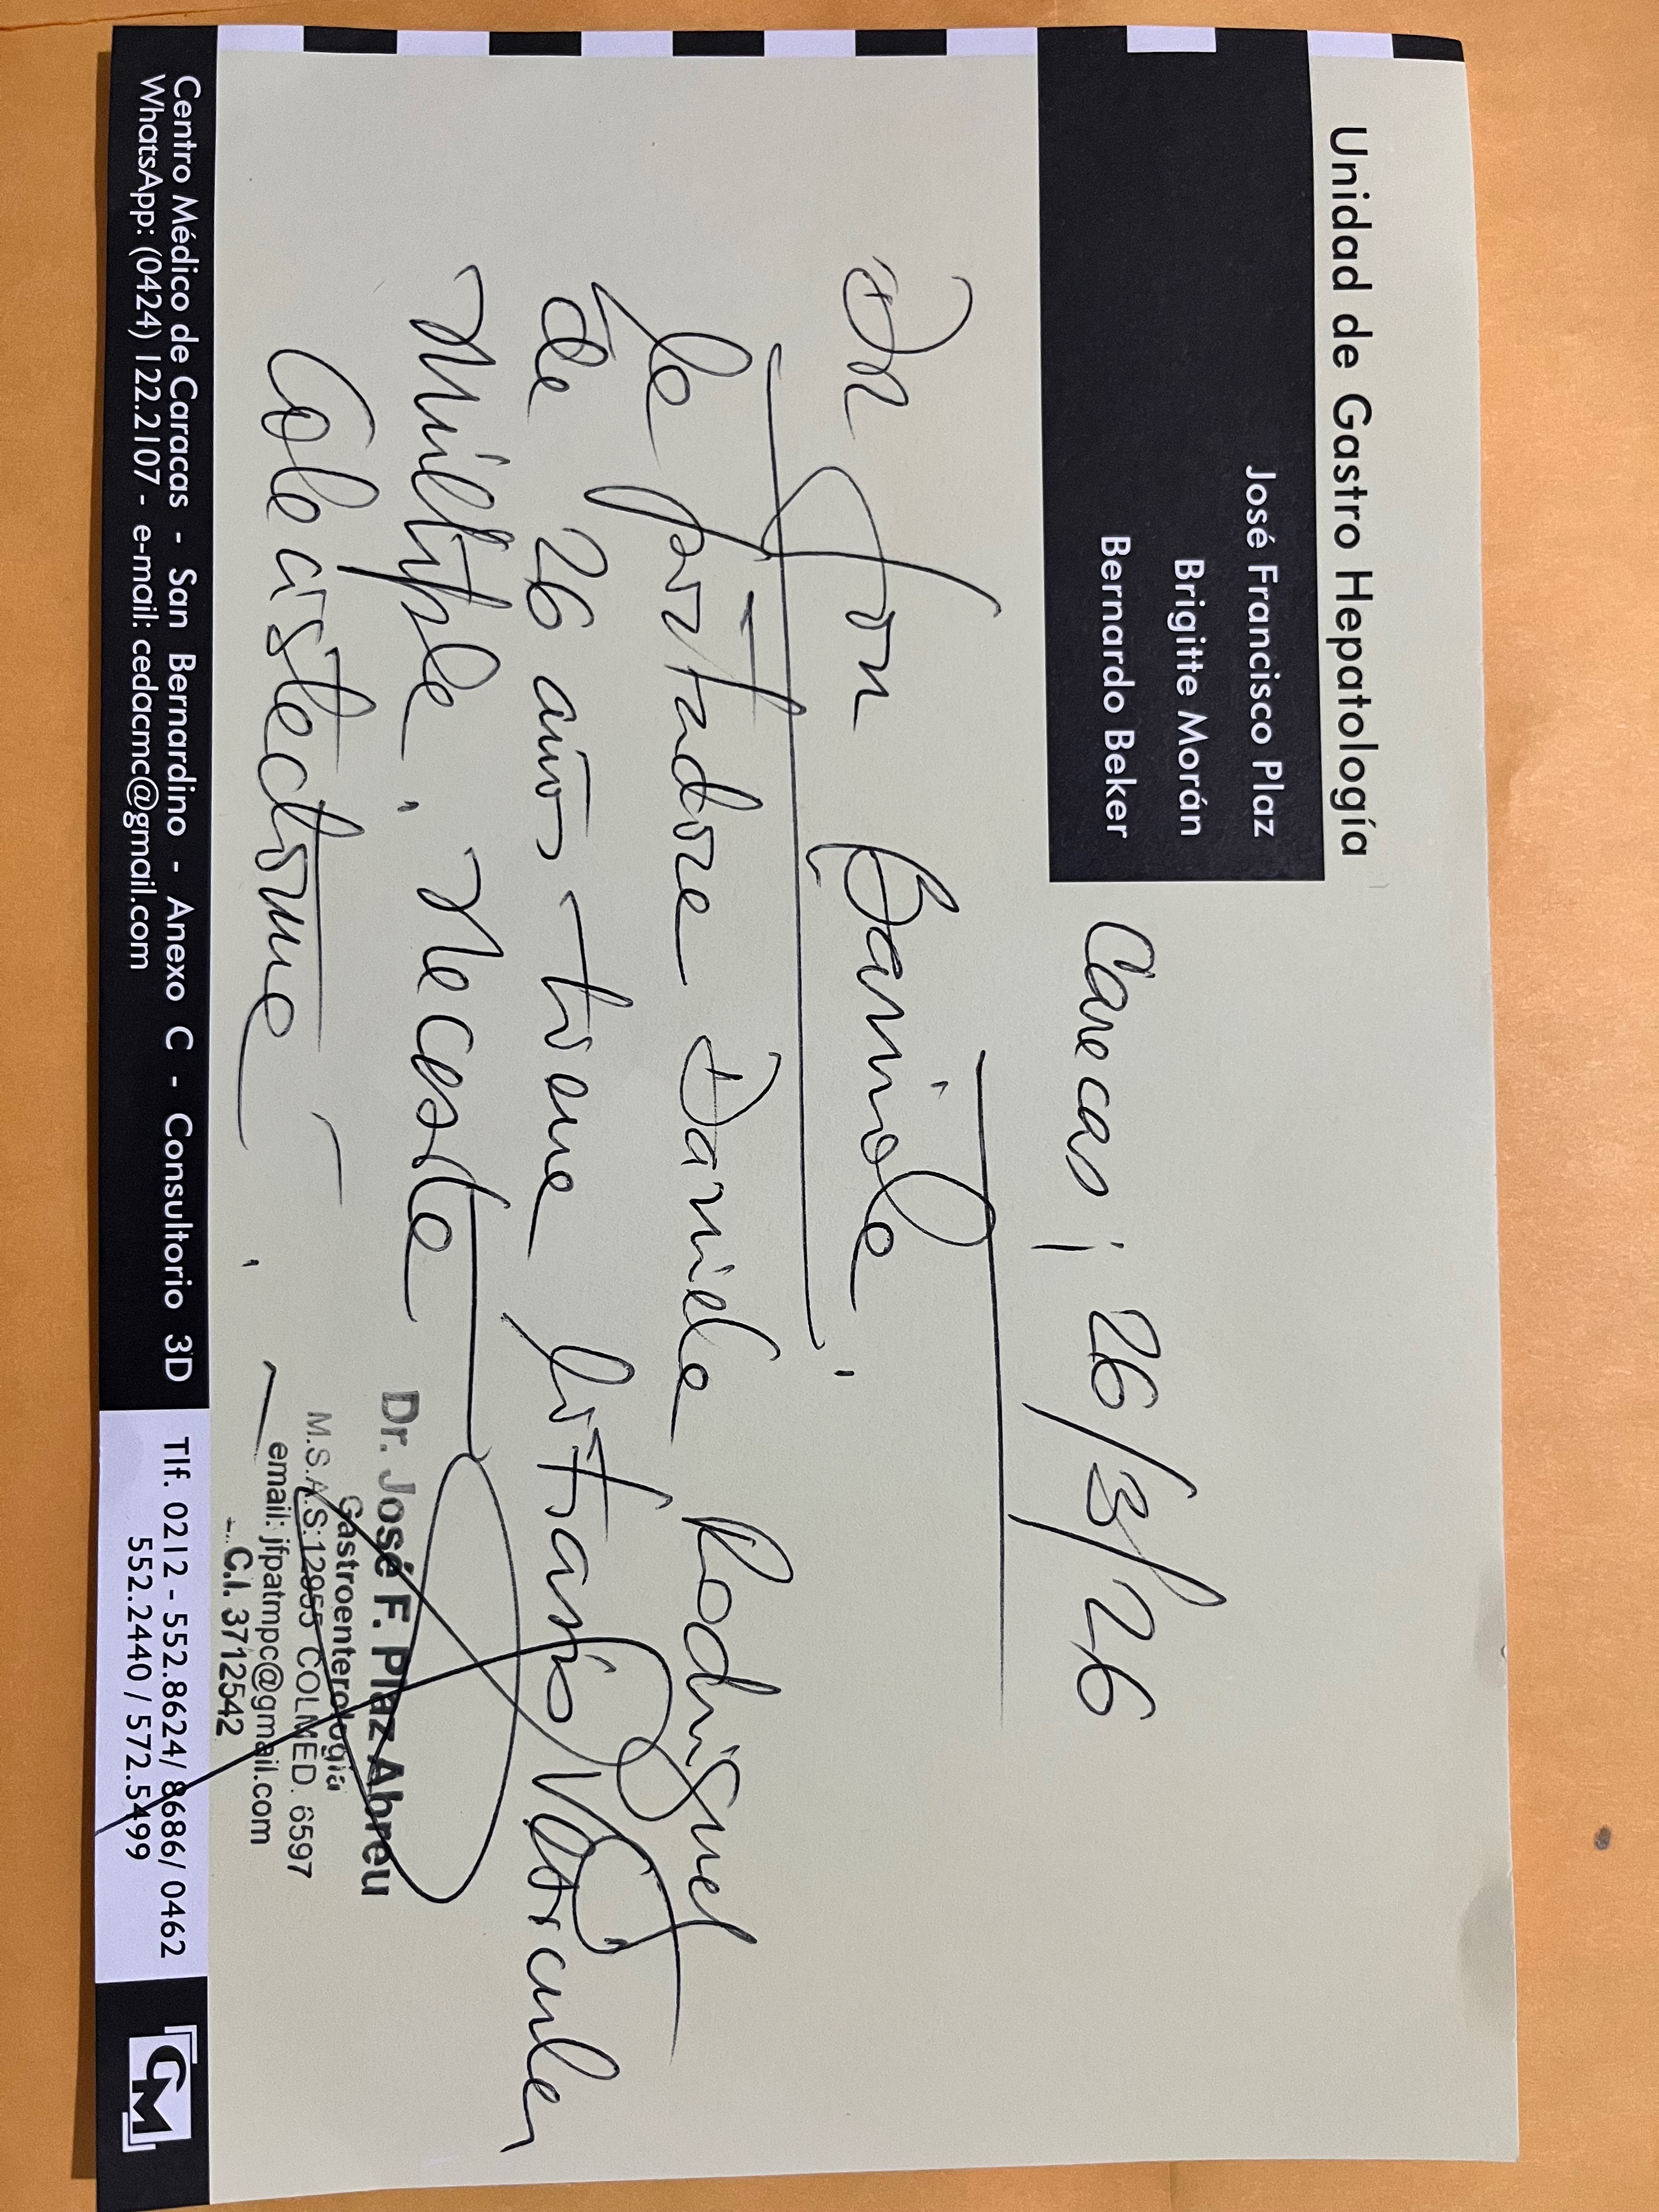 Unidad de Gastro Hepatología
José Francisco Plaz
Brigitte Morán
Bernardo Beker
Caracas; 26/3/26
Dr
La portadora Daniela Rodriguez
de 26 años tiene litiasis Vesicular
Multiple. Necesita
Colecistectomia
Dr. José F. Plaz Abreu
Gastroenterología
M.S.A.S:12955 COLMED. 6597
email: jfpatmpc@gmail.com
C.I. 3712542
Centro Médico de Caracas - San Bernardino - Anexo C - Consultorio 3D
WhatsApp: (0424) 122.2107 - e-mail: cedacmc@gmail.com
Tlf. 0212 - 552.8624/ 8686/ 0462
552.2440 / 572.5499
CM